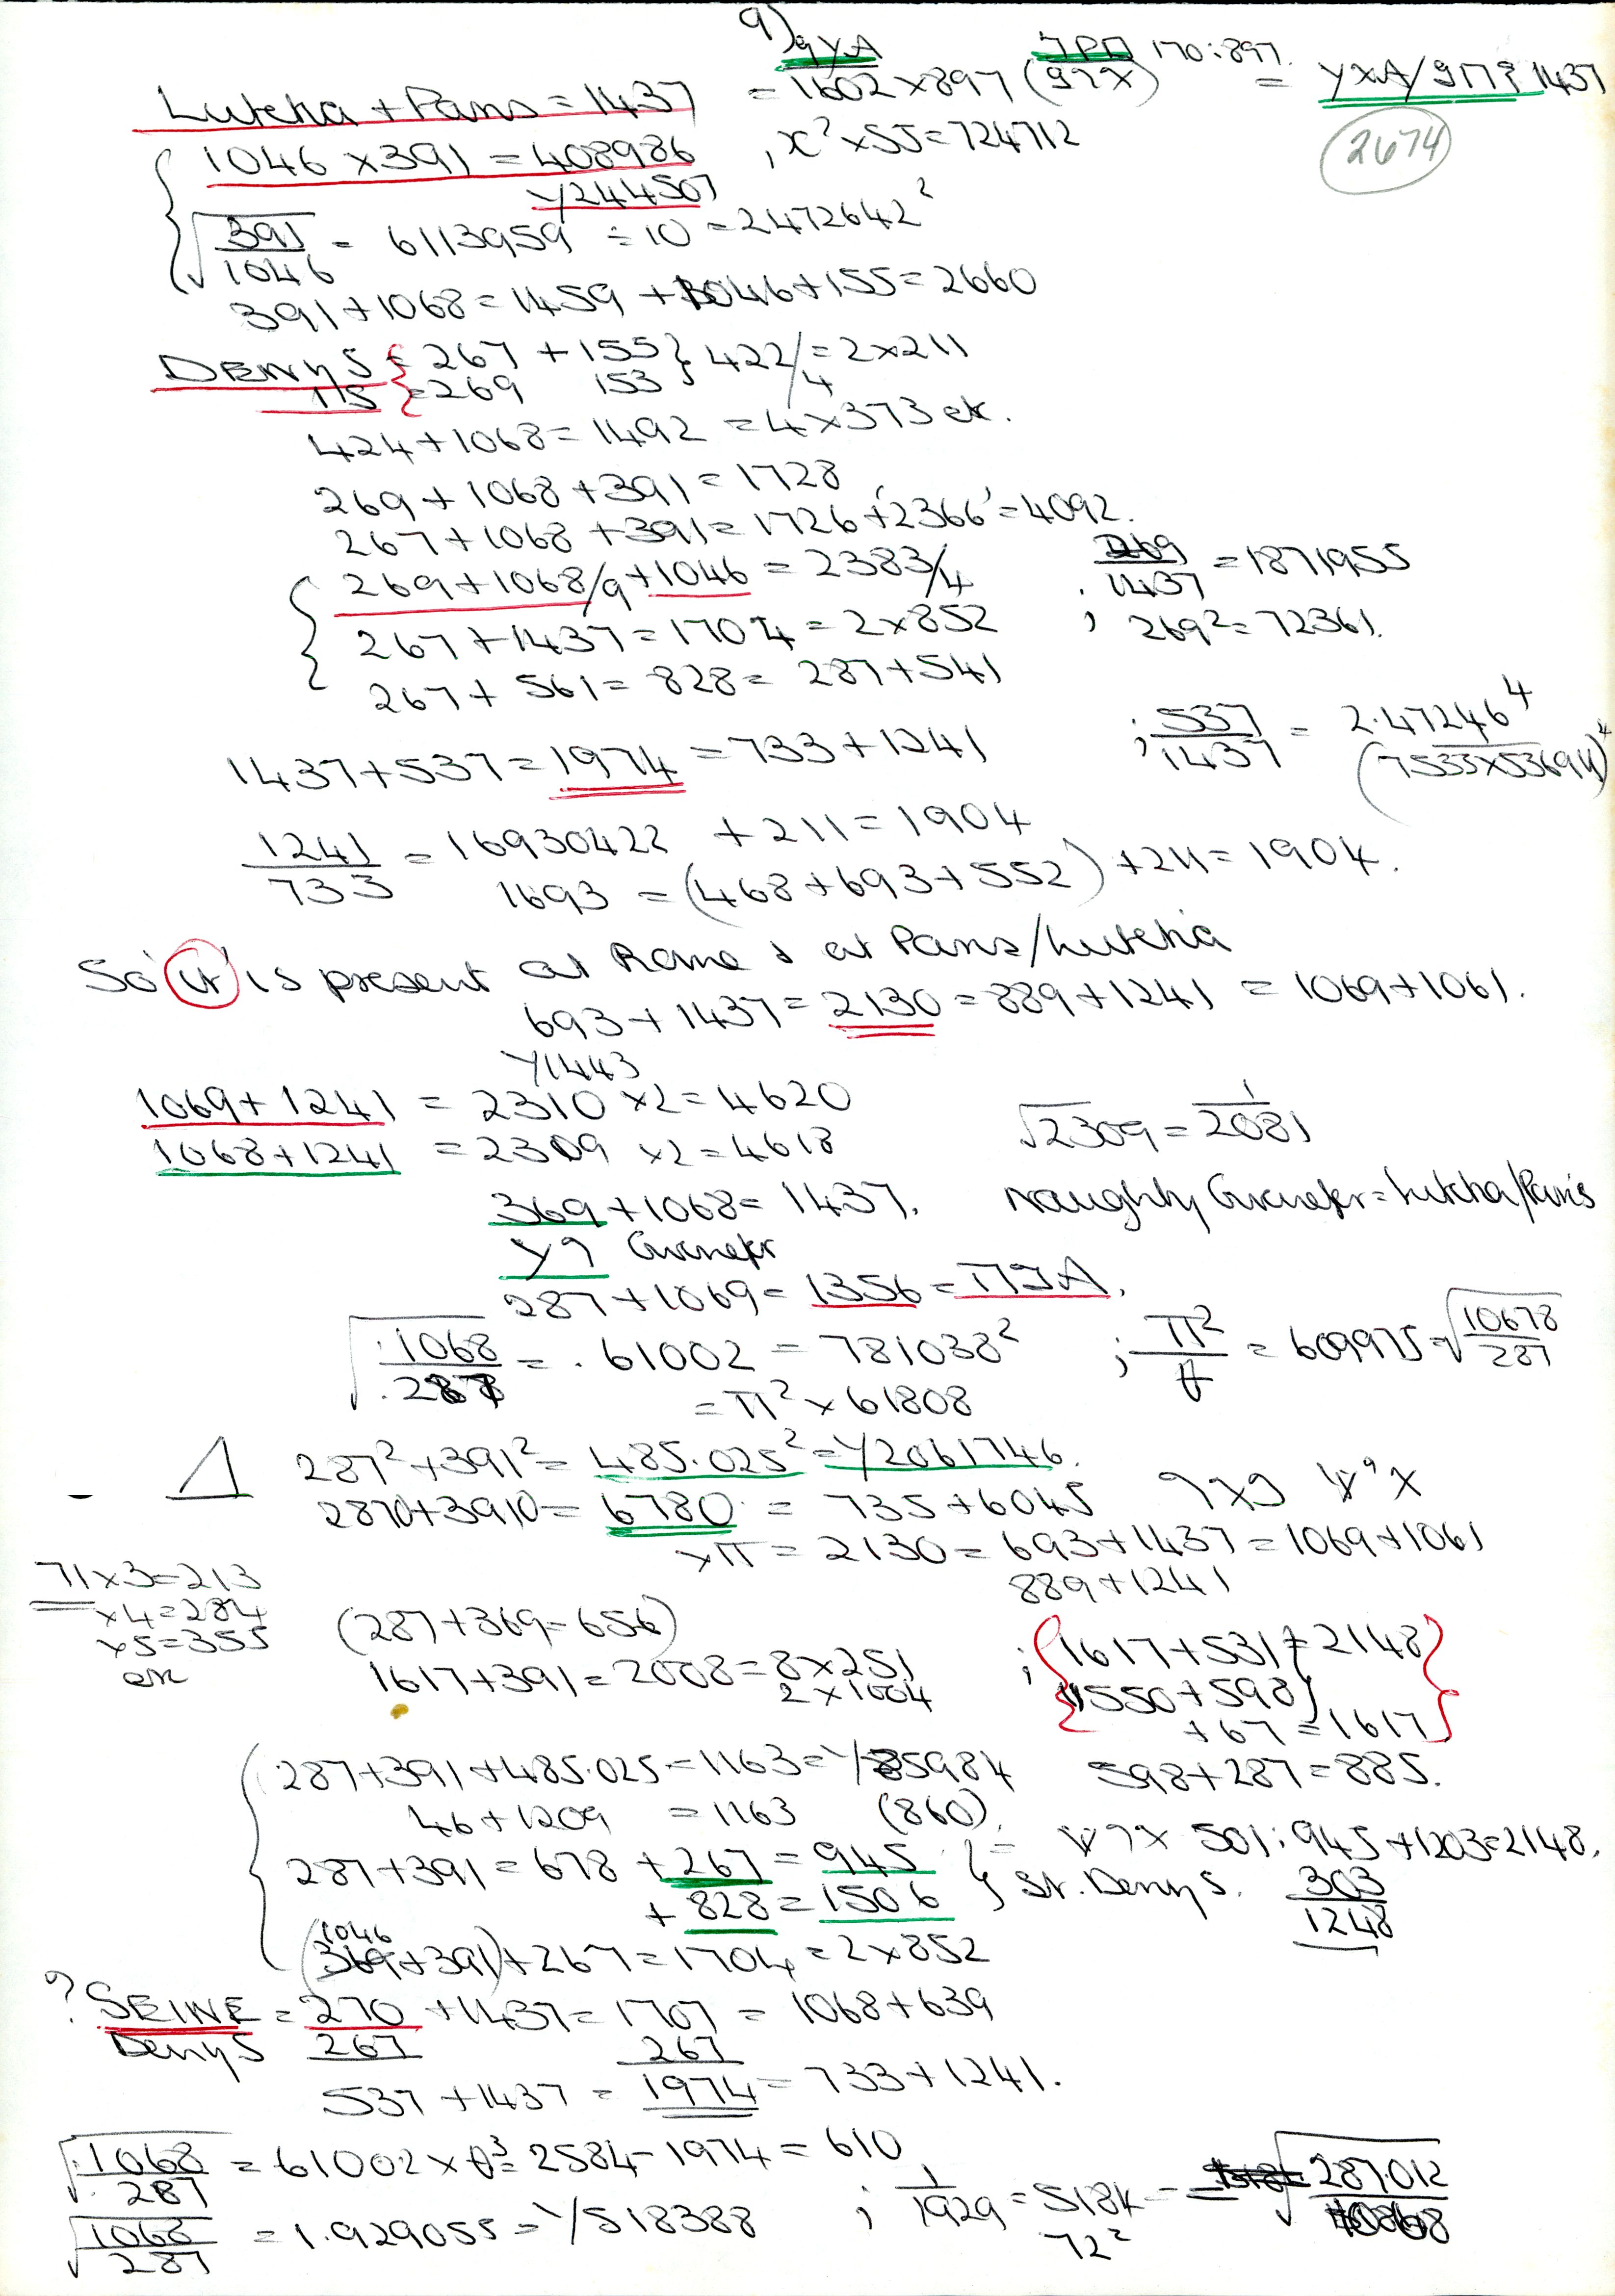 9)
Lutetia + Paris = 1437 = 1602 × 897 (917X) 170:897. = YXA/917? 1437
1046 × 391 = 408986 , x² × 55 = 724712
2674
Y244507
√391/1046 = 6113959 ÷ 10 = 2472642²
391 + 1068 = 1459 + 1046 + 155 = 2660
DENYS = 267 + 155 } 422/4 = 2 × 211
= 269 153
424 + 1068 = 1492 = 4 × 373 etc.
269 + 1068 + 391 = 1728
267 + 1068 + 391 = 1726 + '2366' = 4092.
269 + 1068/9 + 1046 = 2383/4 ; 269/1437 = 1871955
267 + 1437 = 1704 = 2 × 852 ; 269² = 72361.
267 + 561 = 828 = 287 + 541
1437 + 537 = 1974 = 733 + 1241 ; 537/1437 = 2.47246⁴
1241/733 = 16930422 + 211 = 1904
1693 = (468 + 693 + 552) + 211 = 1904.
So 'it' is present at Rome & at Paris/Lutetia
693 + 1437 = 2130 = 889 + 1241 = 1069 + 1061.
Y1443
1069 + 1241 = 2310 × 2 = 4620
1068 + 1241 = 2309 × 2 = 4618 √2309 = 1/2081
369 + 1068 = 1437. Naughty Gwenefr = Lutetia/Paris
Y9 Gwenefr
287 + 1069 = 1356 =
√.1068/.287 = .61002 = 781038² ; π²/θ = 609975 = √10678/287
= π² × 61808
287² + 391² = 485.025² = Y2061746.
2870 + 3910 = 6780 = 735 + 6045
×π = 2130 = 693 + 1437 = 1069 + 1061
889 + 1241
71 × 3 = 213
× 4 = 284
× 5 = 355
etc
(287 + 369 = 656)
1617 + 391 = 2008 = 8 × 251
2 × 1004
; 1617 + 531 = 2148
1550 + 598
+ 67 = 1617
287 + 391 + 485.025 = 1163 = Y85984 598 + 287 = 885.
46 + 1209 = 1163 (860)
287 + 391 = 678 + 267 = 945 501 : 945 + 1203 = 2148.
+ 828 = 1506 St. Denys. 303/1248
1046
(369 + 391) + 267 = 1704 = 2 × 852
? SEINE = 270 + 1437 = 1707 = 1068 + 639
Denys 267 267
537 + 1437 = 1974 = 733 + 1241.
√.1068/.287 = 61002 × θ³ = 2584 - 1974 = 610
√1068/287 = 1.929055 = Y518388 ; 1/1929 = 5184 = √287.012/1068
72²